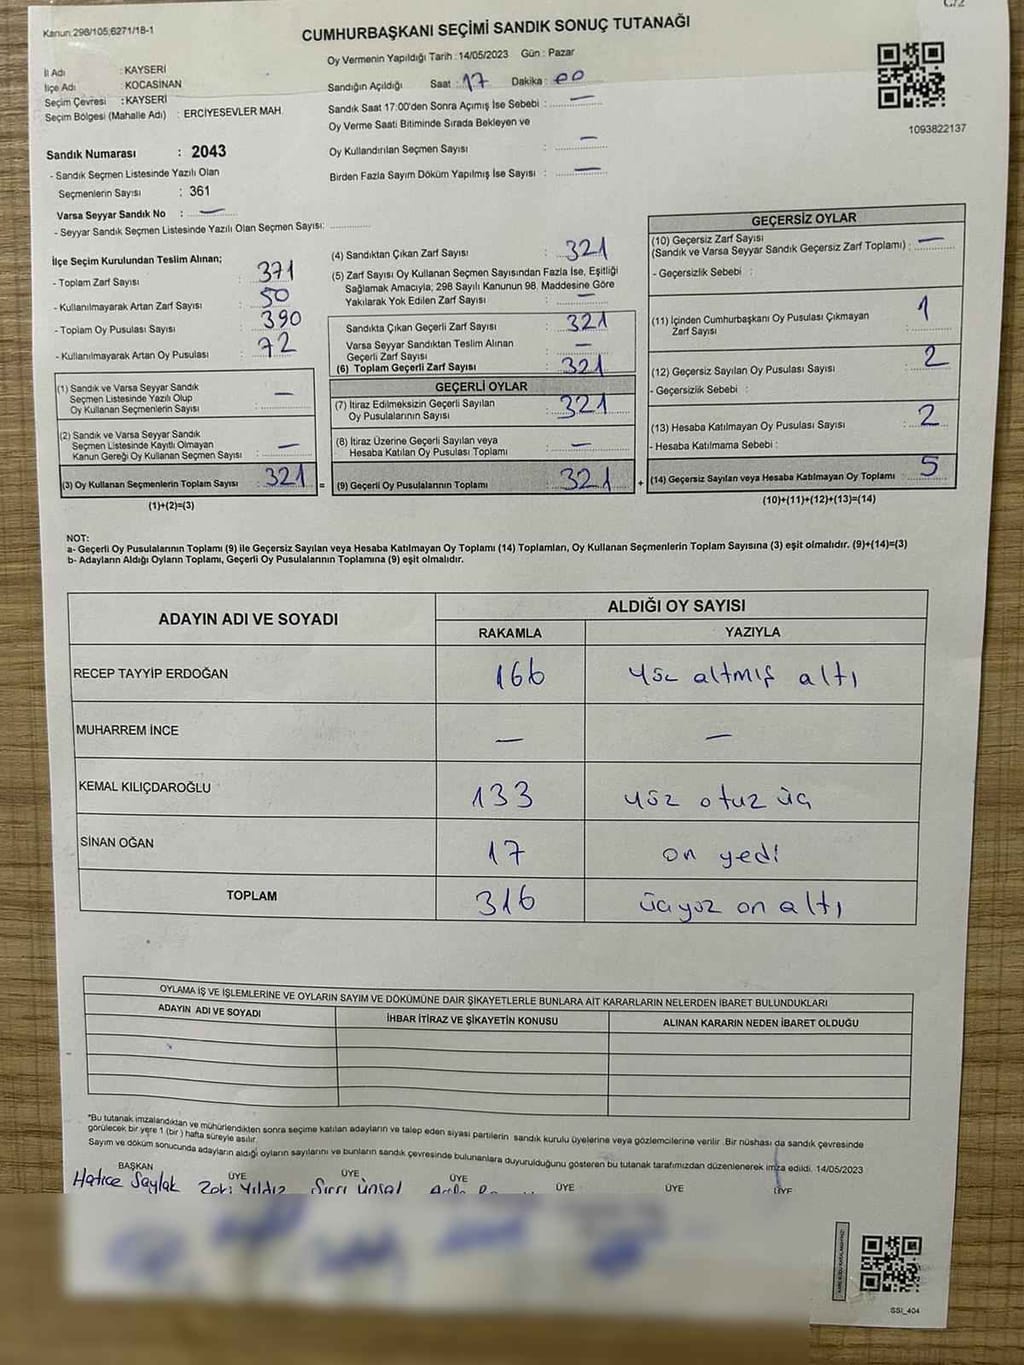 Kanun:298/105;6271/18-1
CUMHURBAŞKANI SEÇİMİ SANDIK SONUÇ TUTANAĞI
C/2
Oy Vermenin Yapıldığı Tarih :14/05/2023 Gün : Pazar
İl Adı : KAYSERİ
İlçe Adı : KOCASİNAN
Seçim Çevresi : KAYSERİ
Seçim Bölgesi (Mahalle Adı) : ERCİYESEVLER MAH.
Sandık Numarası : 2043
- Sandık Seçmen Listesinde Yazılı Olan
Seçmenlerin Sayısı : 361
Varsa Seyyar Sandık No : —
- Seyyar Sandık Seçmen Listesinde Yazılı Olan Seçmen Sayısı:
Sandığın Açıldığı Saat : 17 Dakika : 00
Sandık Saat 17:00'den Sonra Açımış İse Sebebi : —
Oy Verme Saati Bitiminde Sırada Bekleyen ve
Oy Kullandırılan Seçmen Sayısı : —
Birden Fazla Sayım Döküm Yapılmış İse Sayısı : —
1093822137
İlçe Seçim Kurulundan Teslim Alınan;
- Toplam Zarf Sayısı : 371
- Kullanılmayarak Artan Zarf Sayısı : 50
- Toplam Oy Pusulası Sayısı : 390
- Kullanılmayarak Artan Oy Pusulası : 72
(1) Sandık ve Varsa Seyyar Sandık
Seçmen Listesinde Yazılı Olup
Oy Kullanan Seçmenlerin Sayısı : —
(2) Sandık ve Varsa Seyyar Sandık
Seçmen Listesinde Kayıtlı Olmayan
Kanun Gereği Oy Kullanan Seçmen Sayısı : —
(3) Oy Kullanan Seçmenlerin Toplam Sayısı : 321
(1)+(2)=(3)
(4) Sandıktan Çıkan Zarf Sayısı : 321
(5) Zarf Sayısı Oy Kullanan Seçmen Sayısından Fazla İse, Eşitliği
Sağlamak Amacıyla; 298 Sayılı Kanunun 98. Maddesine Göre
Yakılarak Yok Edilen Zarf Sayısı : —
Sandıkta Çıkan Geçerli Zarf Sayısı : 321
Varsa Seyyar Sandıktan Teslim Alınan
Geçerli Zarf Sayısı : —
(6) Toplam Geçerli Zarf Sayısı : 321
GEÇERLİ OYLAR
(7) İtiraz Edilmeksizin Geçerli Sayılan
Oy Pusulalarının Sayısı : 321
(8) İtiraz Üzerine Geçerli Sayılan veya
Hesaba Katılan Oy Pusulası Toplamı : —
= (9) Geçerli Oy Pusulalarının Toplamı : 321
GEÇERSİZ OYLAR
(10) Geçersiz Zarf Sayısı
(Sandık ve Varsa Seyyar Sandık Geçersiz Zarf Toplamı) : —
- Geçersizlik Sebebi :
(11) İçinden Cumhurbaşkanı Oy Pusulası Çıkmayan
Zarf Sayısı : 1
(12) Geçersiz Sayılan Oy Pusulası Sayısı : 2
- Geçersizlik Sebebi :
(13) Hesaba Katılmayan Oy Pusulası Sayısı : 2
- Hesaba Katılmama Sebebi :
+ (14) Geçersiz Sayılan veya Hesaba Katılmayan Oy Toplamı : 5
(10)+(11)+(12)+(13)=(14)
NOT:
a- Geçerli Oy Pusulalarının Toplamı (9) ile Geçersiz Sayılan veya Hesaba Katılmayan Oy Toplamı (14) Toplamları, Oy Kullanan Seçmenlerin Toplam Sayısına (3) eşit olmalıdır. (9)+(14)=(3)
b- Adayların Aldığı Oyların Toplamı, Geçerli Oy Pusulalarının Toplamına (9) eşit olmalıdır.
ADAYIN ADI VE SOYADI ALDIĞI OY SAYISI
RAKAMLA YAZIYLA
RECEP TAYYİP ERDOĞAN 166 yüz altmış altı
MUHARREM İNCE — —
KEMAL KILIÇDAROĞLU 133 yüz otuz üç
SİNAN OĞAN 17 on yedi
TOPLAM 316 üçyüz on altı
OYLAMA İŞ VE İŞLEMLERİNE VE OYLARIN SAYIM VE DÖKÜMÜNE DAİR ŞİKAYETLERLE BUNLARA AİT KARARLARIN NELERDEN İBARET BULUNDUKLARI
ADAYIN ADI VE SOYADI İHBAR İTİRAZ VE ŞİKAYETİN KONUSU ALINAN KARARIN NEDEN İBARET OLDUĞU
*Bu tutanak imzalandıktan ve mühürlendikten sonra seçime katılan adayların ve talep eden siyasi partilerin sandık kurulu üyelerine veya gözlemcilerine verilir. Bir nüshası da sandık çevresinde
görülecek bir yere 1 (bir) hafta süreyle asılır.
Sayım ve döküm sonucunda adayların aldığı oyların sayılarını ve bunların sandık çevresinde bulunanlara duyurulduğunu gösteren bu tutanak tarafımızdan düzenlenerek imza edildi. 14/05/2023
BAŞKAN ÜYE ÜYE ÜYE ÜYE ÜYE ÜYE
Hatice Saylak Zeki Yıldız Sırrı Ünsal
SSI_404